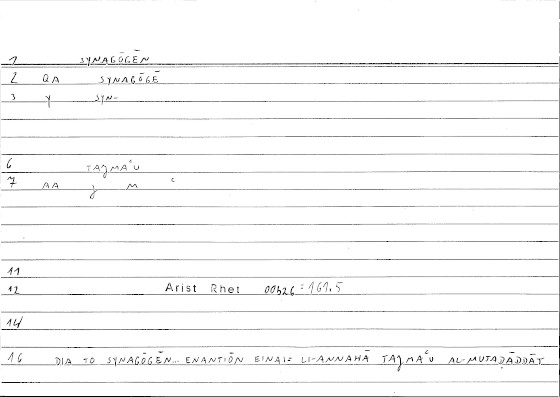 1 SYNAGŌGĒN
2 QA SYNAGŌGĒ
3 Y SYN-
6 TAǧMAʿU
7 AA ǧ M ʿ
11
12 Arist Rhet 00526 = 161.5
14
16 DIA TO SYNAGŌGĒN... ENANTIŌN EINAI = LI-ANNAHĀ TAǧMAʿU AL-MUTAḌĀDDĀT